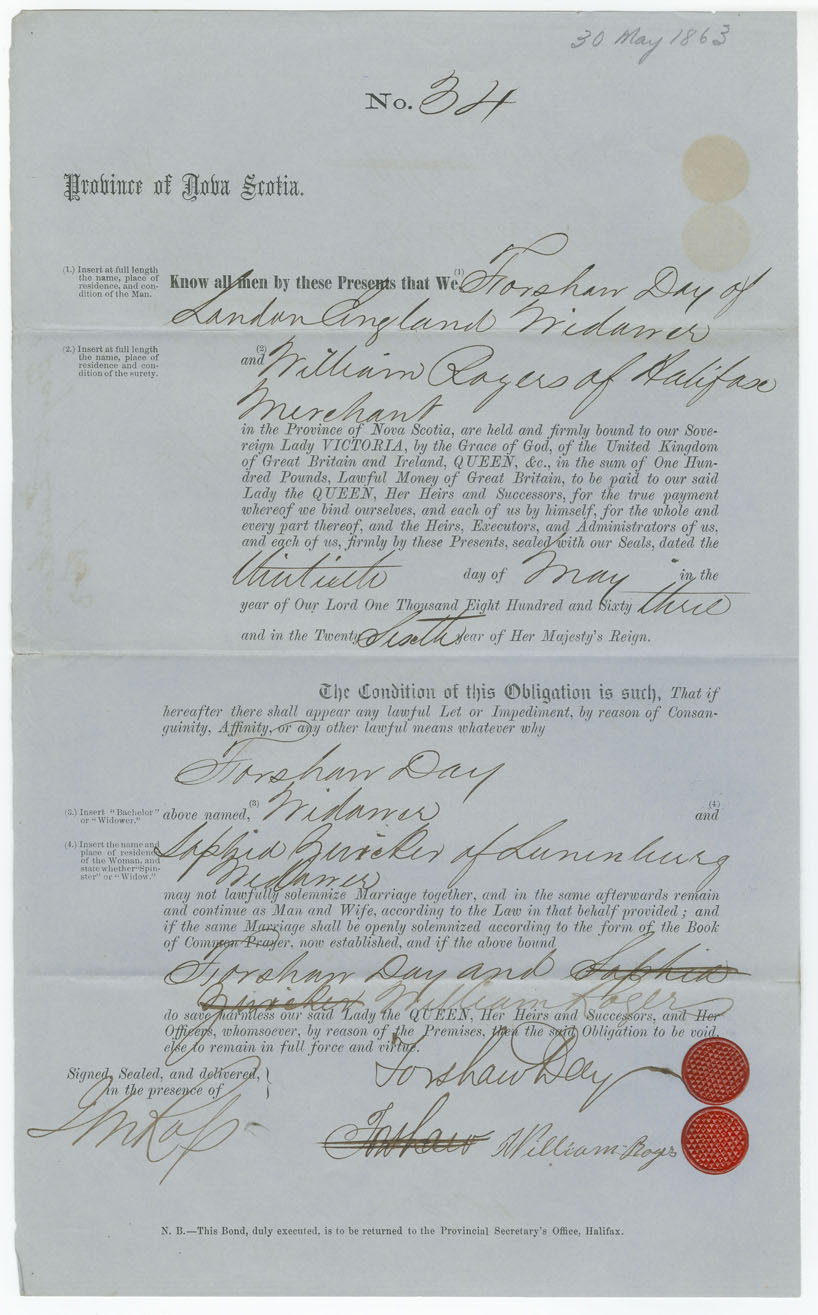 30 May 1863
No. 34
Province of Nova Scotia.
(1.) Insert at full length
the name, place of
residence, and con-
dition of the Man.
Know all men by these Presents that We (1) Forshaw Day of
London England Widower
(2.) Insert at full length
the name, place of
residence and con-
dition of the surety.
and (2) William Rogers of Halifax
Merchant
in the Province of Nova Scotia, are held and firmly bound to our Sove-
reign Lady VICTORIA, by the Grace of God, of the United Kingdom
of Great Britain and Ireland, QUEEN, &c., in the sum of One Hun-
dred Pounds, Lawful Money of Great Britain, to be paid to our said
Lady the QUEEN, Her Heirs and Successors, for the true payment
whereof we bind ourselves, and each of us by himself, for the whole and
every part thereof, and the Heirs, Executors, and Administrators of us,
and each of us, firmly by these Presents, sealed with our Seals, dated the
thirtieth day of May in the
year of Our Lord One Thousand Eight Hundred and Sixty three
and in the Twenty Sixth year of Her Majesty's Reign.
The Condition of this Obligation is such, That if
hereafter there shall appear any lawful Let or Impediment, by reason of Consan-
guinity, Affinity, or any other lawful means whatever why
Forshaw Day
(3.) Insert "Bachelor"
or "Widower."
above named, (3) Widower and (4)
(4.) Insert the name and
place of residence
of the Woman, and
state whether "Spin-
ster" or "Widow."
Sophia of Lunenburg
Widower
may not lawfully solemnize Marriage together, and in the same afterwards remain
and continue as Man and Wife, according to the Law in that behalf provided; and
if the same Marriage shall be openly solemnized according to the form of the Book
of Common Prayer, now established, and if the above bound
Forshaw Day and Sophia
William Rogers
do save harmless our said Lady the QUEEN, Her Heirs and Successors, and Her
Officers, whomsoever, by reason of the Premises, then the said Obligation to be void,
else to remain in full force and virtue.
Signed, Sealed, and delivered,
in the presence of
Forshaw Day
Forshaw William Rogers
N. B.—This Bond, duly executed, is to be returned to the Provincial Secretary's Office, Halifax.